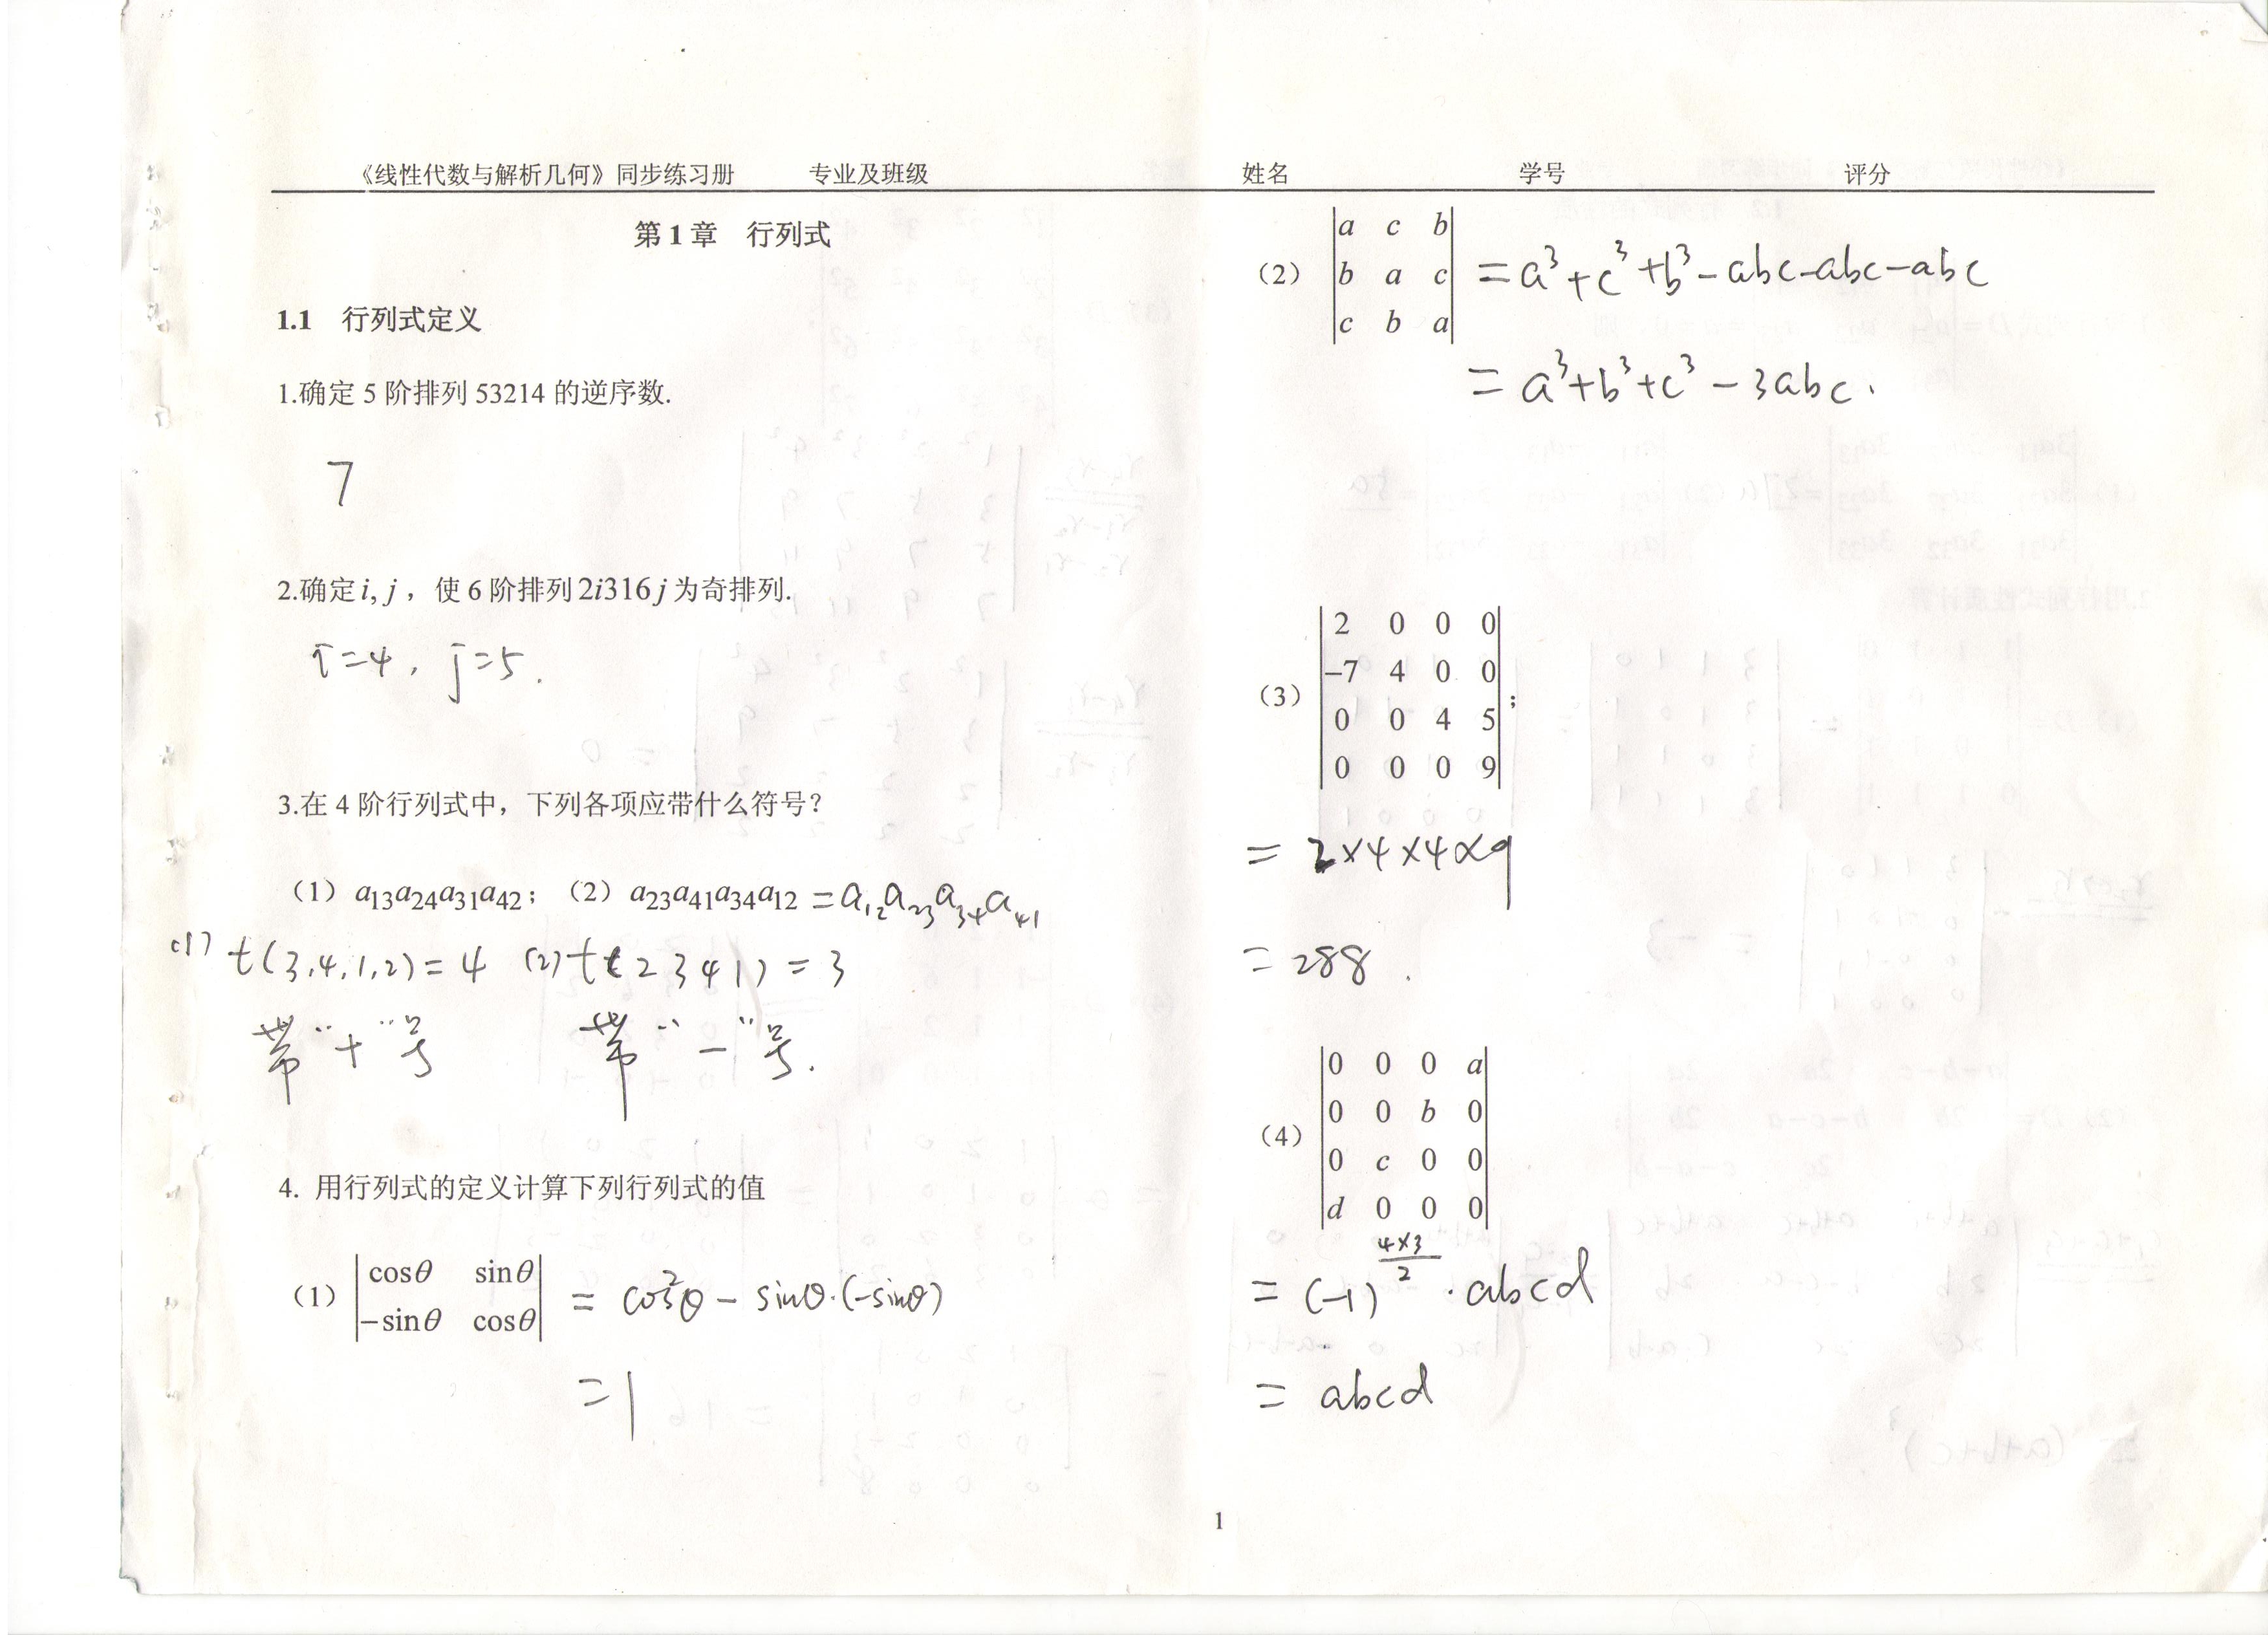 《线性代数与解析几何》同步练习册 专业及班级 姓名 学号 评分
第 1 章 行列式
1.1 行列式定义
1.确定 5 阶排列 53214 的逆序数.
7
2.确定 i, j ，使 6 阶排列 2i316j 为奇排列.
i=4, j=5.
3.在 4 阶行列式中，下列各项应带什么符号？
（1）a13a24a31a42；（2）a23a41a34a12 = a12a23a34a41
(1) t(3,4,1,2)=4 (2) t(2 3 4 1)=3
带"+"号 带"-"号.
4. 用行列式的定义计算下列行列式的值
（1） |cosθ sinθ| = cos²θ - sinθ·(-sinθ)
|-sinθ cosθ|
=1
（2） |a c b|
|b a c| = a³+c³+b³-abc-abc-abc
|c b a|
= a³+b³+c³-3abc.
（3） |2 0 0 0|
|-7 4 0 0|
|0 0 4 5| ;
|0 0 0 9|
= 2×4×4×9
= 288.
（4） |0 0 0 a|
|0 0 b 0|
|0 c 0 0|
|d 0 0 0|
= (-1)^(4×3/2) · abcd
= abcd
1